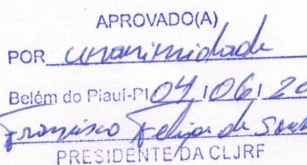 APROVADO(A)
POR unanimidade
Belém do Piauí-PI 04/06/20
Francisco Felipe de Sousa
PRESIDENTE DA CLJRF